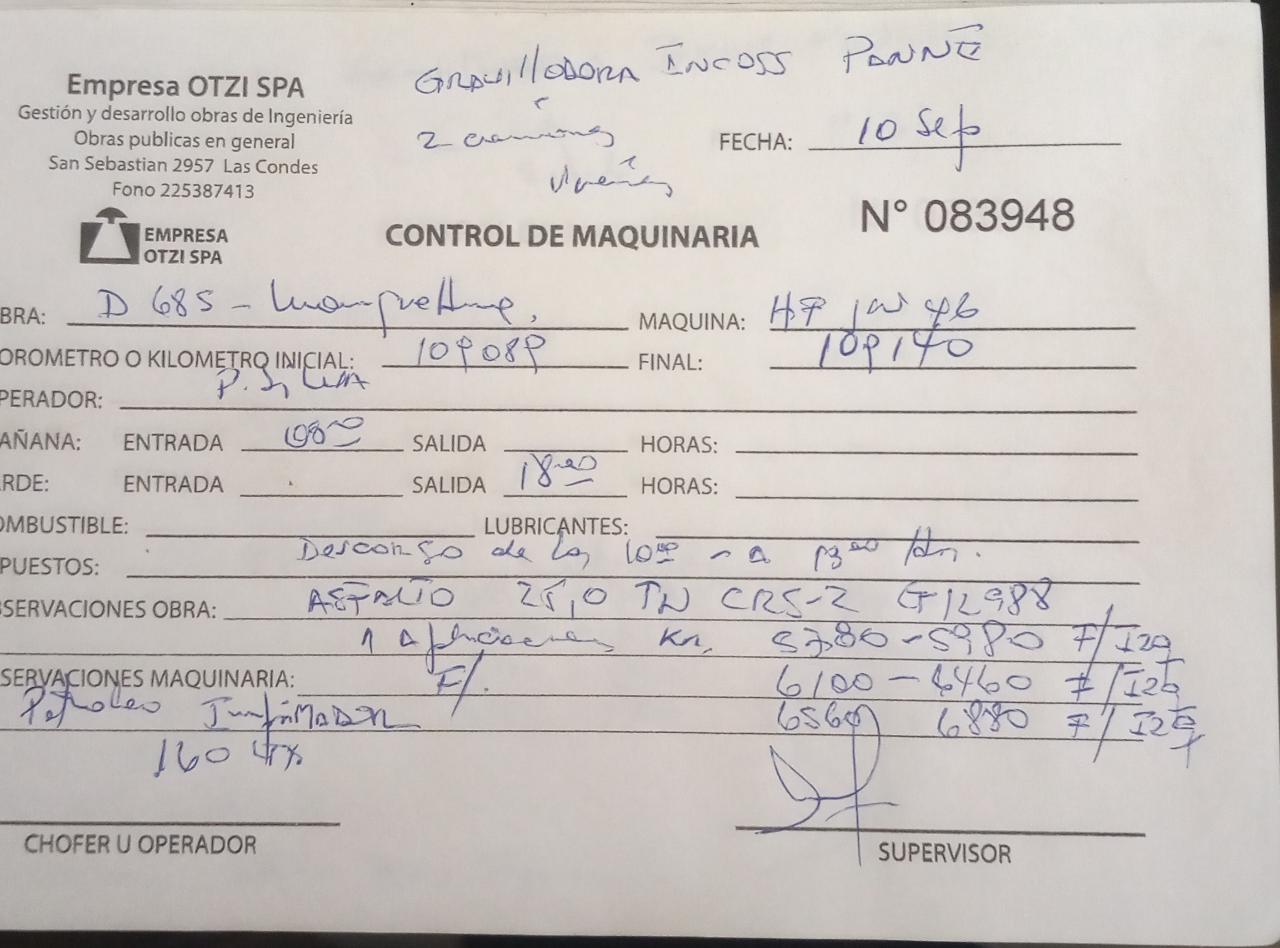 GRAVILLADORA INCOSS PANNE
Empresa OTZI SPA
Gestión y desarrollo obras de Ingeniería
Obras publicas en general
San Sebastian 2957 Las Condes
Fono 225387413
2 camiones
FECHA: 10 Sep
EMPRESA
OTZI SPA
CONTROL DE MAQUINARIA
N° 083948
BRA: D 685 - MAQUINA: HF JW 46
OROMETRO O KILOMETRO INICIAL: 109089 FINAL: 109140
PERADOR: P.
AÑANA: ENTRADA 08:00 SALIDA HORAS:
RDE: ENTRADA SALIDA 18:00 HORAS:
OMBUSTIBLE: LUBRICANTES:
PUESTOS: Descanso de las 10:00 - a 13:00 Hr.
SERVACIONES OBRA: ASFALTO 25,0 TN CRS-2 G/12988
1 Aplicaciones Km, 5780-5980 F/Izq
SERVACIONES MAQUINARIA: F/. 6100-6460 F/Izq
Petroleo 6560 6880 F/Izq
160 LTS
CHOFER U OPERADOR SUPERVISOR